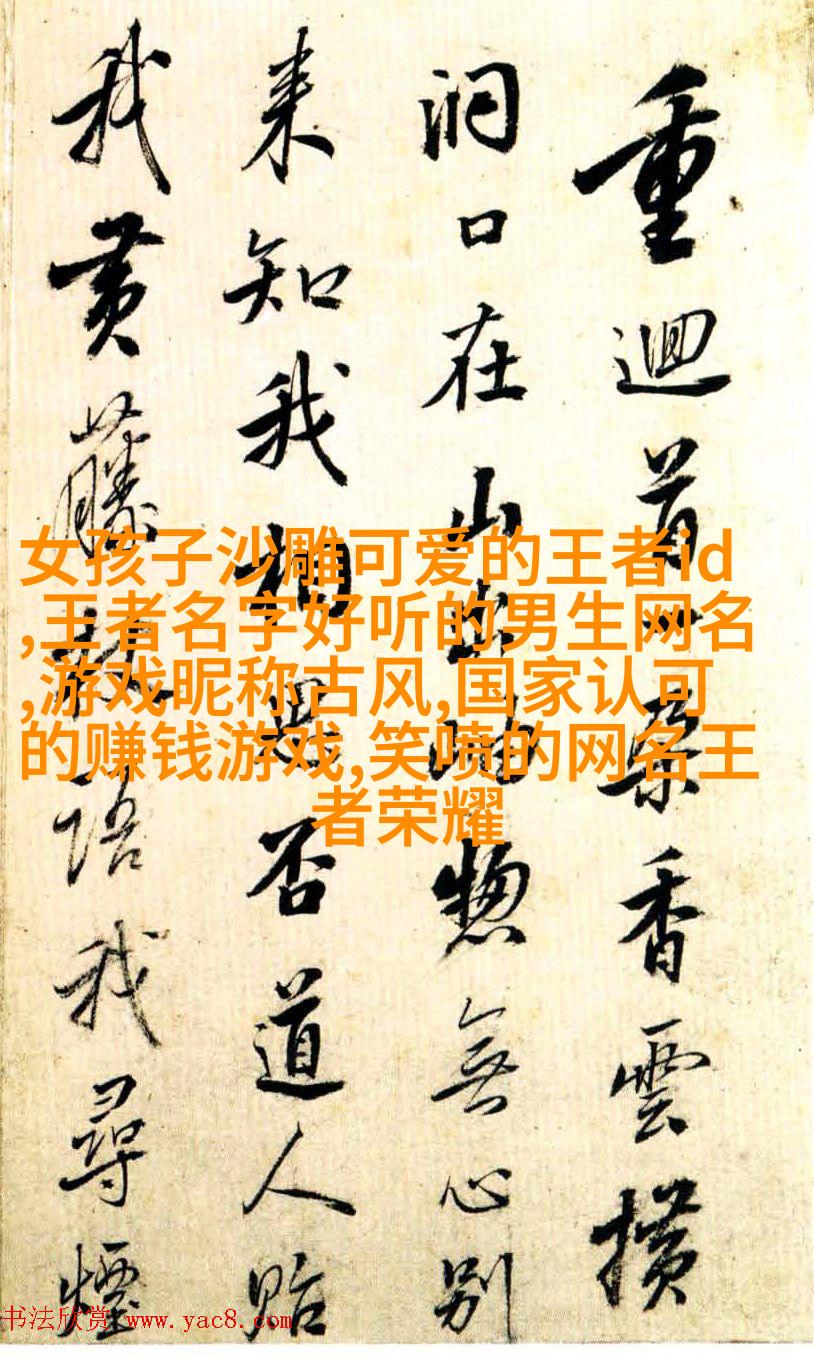 重迴首一朵香雲
洞口在山惣無心别
来知我相否道人贻
我黄藤杖语我尋煙
女孩子沙雕可爱的王者id
,王者名字好听的男生网名
,游戏昵称古风,国家认可
的赚钱游戏,笑喷的网名王
者荣耀
书法欣赏 www.yac8.com